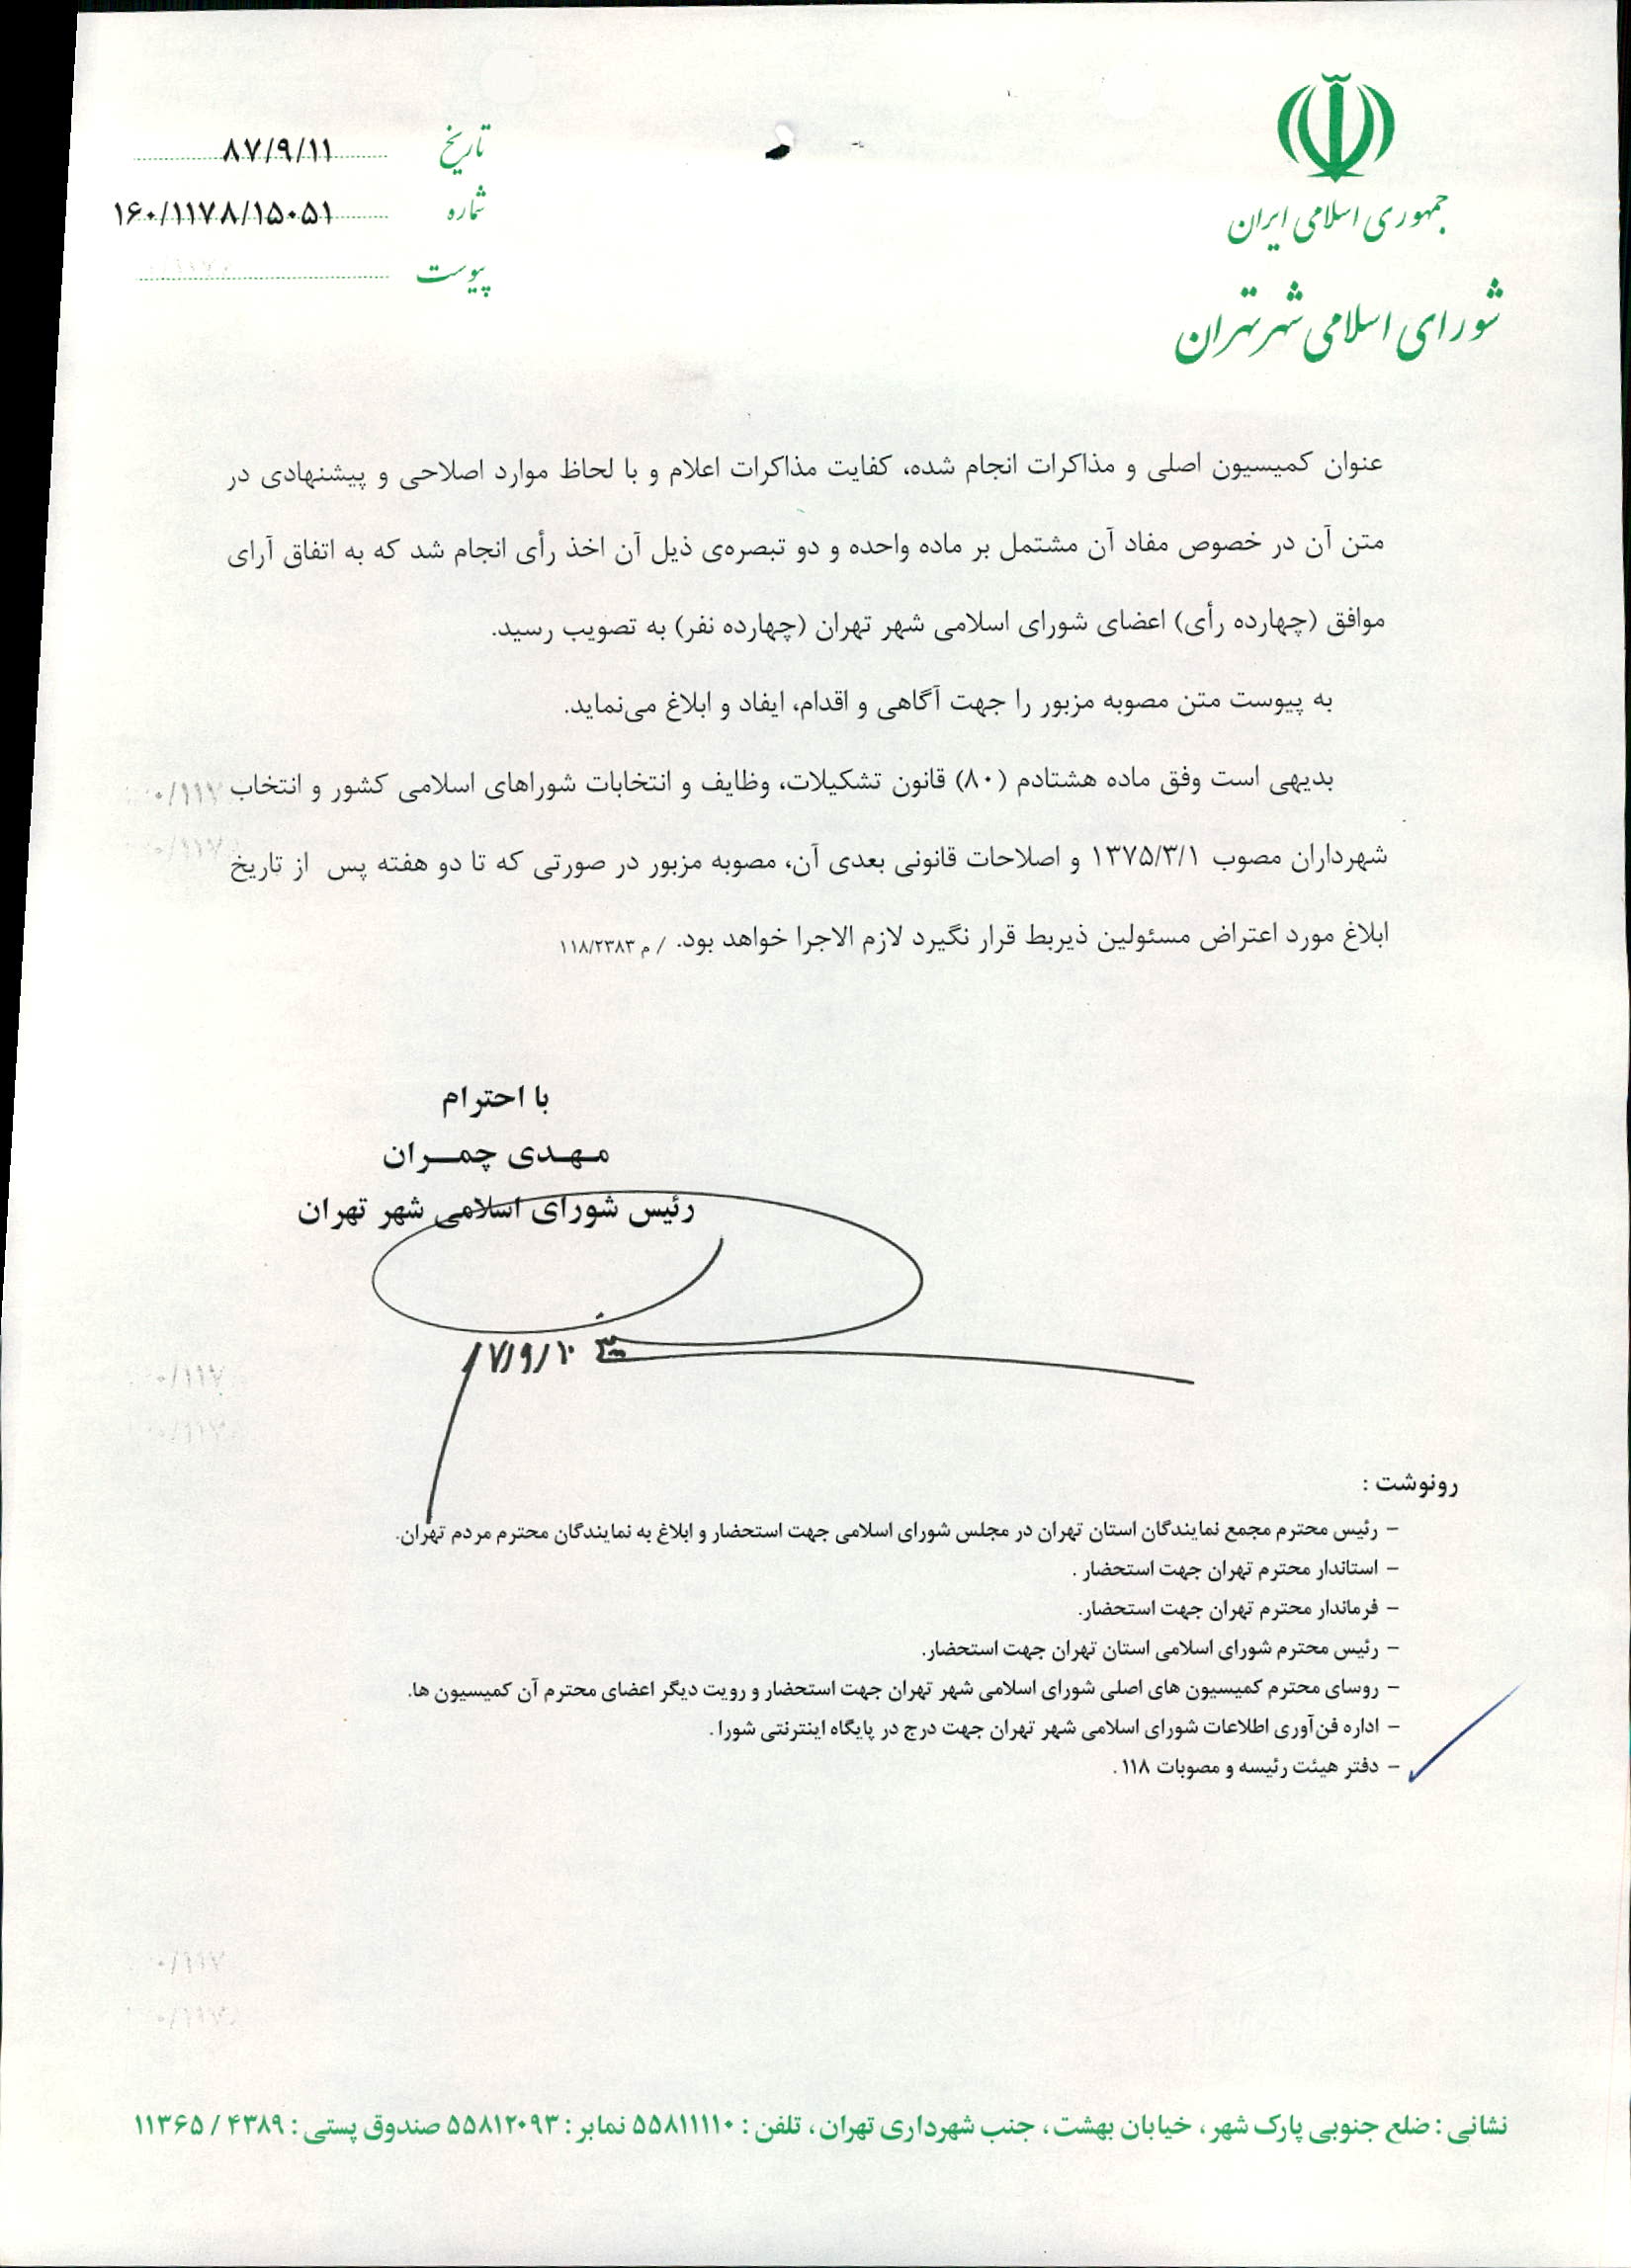 جمهوری اسلامی ایران
شورای اسلامی شهر تهران
تاریخ ۸۷/۹/۱۱
شماره ۱۶۰/۱۱۷۸/۱۵۰۵۱
پیوست
عنوان کمیسیون اصلی و مذاکرات انجام شده، کفایت مذاکرات اعلام و با لحاظ موارد اصلاحی و پیشنهادی در
متن آن در خصوص مفاد آن مشتمل بر ماده واحده و دو تبصره‌ی ذیل آن اخذ رأی انجام شد که به اتفاق آرای
موافق (چهارده رأی) اعضای شورای اسلامی شهر تهران (چهارده نفر) به تصویب رسید.
به پیوست متن مصوبه مزبور را جهت آگاهی و اقدام، ایفاد و ابلاغ می‌نماید.
بدیهی است وفق ماده هشتادم (۸۰) قانون تشکیلات، وظایف و انتخابات شوراهای اسلامی کشور و انتخاب
شهرداران مصوب ۱۳۷۵/۳/۱ و اصلاحات قانونی بعدی آن، مصوبه مزبور در صورتی که تا دو هفته پس از تاریخ
ابلاغ مورد اعتراض مسئولین ذیربط قرار نگیرد لازم الاجرا خواهد بود. / م ۱۱۸/۲۳۸۳
با احترام
مهدی چمران
رئیس شورای اسلامی شهر تهران
رونوشت :
- رئیس محترم مجمع نمایندگان استان تهران در مجلس شورای اسلامی جهت استحضار و ابلاغ به نمایندگان محترم مردم تهران.
- استاندار محترم تهران جهت استحضار .
- فرماندار محترم تهران جهت استحضار.
- رئیس محترم شورای اسلامی استان تهران جهت استحضار.
- روسای محترم کمیسیون های اصلی شورای اسلامی شهر تهران جهت استحضار و رویت دیگر اعضای محترم آن کمیسیون ها.
- اداره فن‌آوری اطلاعات شورای اسلامی شهر تهران جهت درج در پایگاه اینترنتی شورا .
- دفتر هیئت رئیسه و مصوبات ۱۱۸ .
نشانی : ضلع جنوبی پارک شهر ، خیابان بهشت ، جنب شهرداری تهران ، تلفن : ۵۵۸۱۱۱۱۰ نمابر : ۵۵۸۱۲۰۹۳ صندوق پستی : ۴۳۸۹ / ۱۱۳۶۵